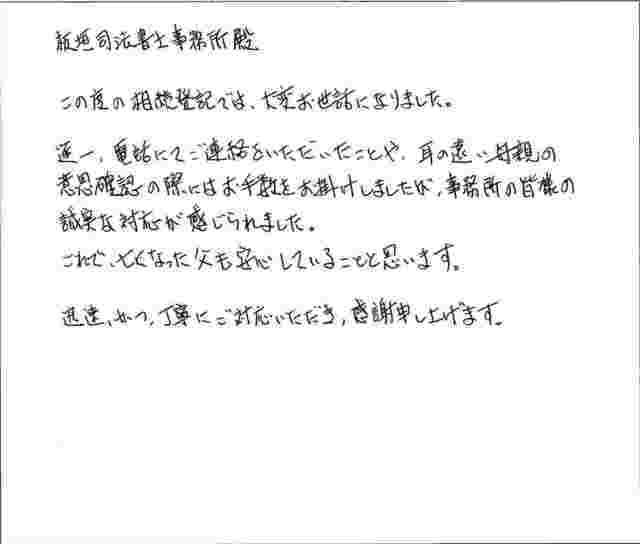 板垣司法書士事務所殿
この度の相続登記では、大変お世話になりました。
逐一、電話にてご連絡をいただいたことや、耳の遠い母親の
意思確認の際にはお手数をお掛けしましたが、事務所の皆様の
誠実な対応が感じられました。
これで、亡くなった父も安心していることと思います。
迅速、かつ、丁寧にご対応いただき、感謝申し上げます。